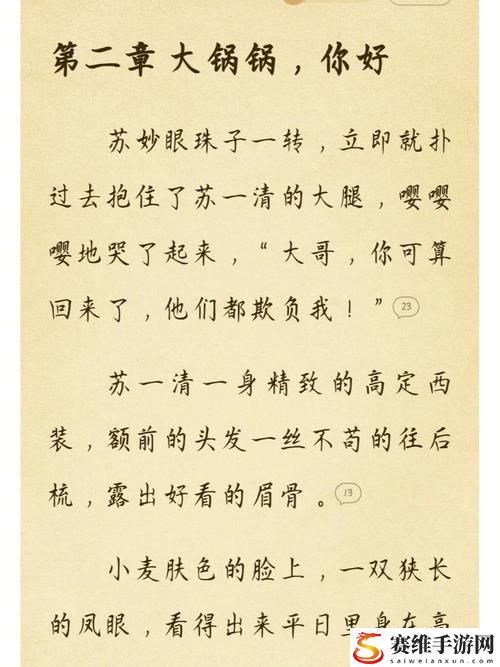 第二章 大锅锅，你好
苏妙眼珠子一转，立即就扑
过去抱住了苏一清的大腿，嘤嘤
嘤地哭了起来，“大哥，你可算
回来了，他们都欺负我！”23
苏一清一身精致的高定西
装，额前的头发一丝不苟的往后
梳，露出好看的眉骨。13
小麦肤色的脸上，一双狭长
的凤眼，看得出来平日里身在高
赛维手游网
www.saiweianxun.com